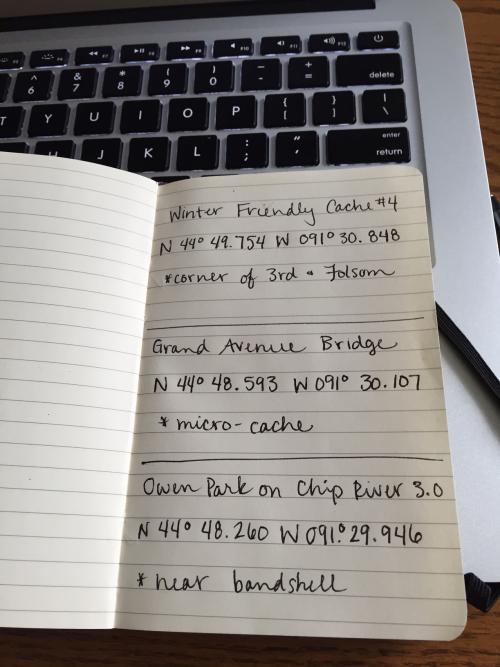 F6 F7 F8 F9 F10 F11 F12
^ & * ( ) _ +
6 7 8 9 0 - = delete
T Y U I O P { } |
[ ] \
H J K L : " enter
; ' return
Winter Friendly Cache #4
N 44° 49.754 W 091° 30.848
*corner of 3rd & Folsom
Grand Avenue Bridge
N 44° 48.593 W 091° 30.107
* micro-cache
Owen Park on Chip River 3.0
N 44° 48.260 W 091.° 29.946
* near bandshell